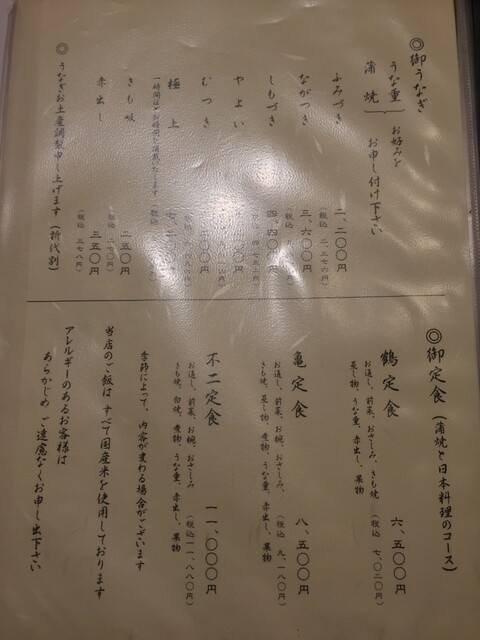 ◎御うなぎ
うな重
蒲焼
お好みを
お申し付け下さい
ふみづき 二、二〇〇円
(税込 二、三七六円)
ながつき 三、六〇〇円
(税込
しもづき 四、四〇〇円
四、七五二円)
やよい 〇〇円
むつき 〇〇円
極上 七、
一時間ほどお時間を頂戴いたします(税込
きも吸 二五〇円
(税込 二七〇円)
赤出し 三五〇円
(税込 三七八円)
◎うなぎお土産調製申し上げます(折代別)
◎御定食(蒲焼と日本料理のコース)
鶴定食 六、五〇〇円
(税込 七、〇二〇円)
お通し、前菜、お椀、おさしみ、きも焼
蒸し物、うな重、赤出し、果物
亀定食 八、五〇〇円
(税込 九、一八〇円)
お通し、前菜、お椀、おさしみ、
きも焼、蒸し物、煮物、うな重、赤出し、果物
不二定食 一一、〇〇〇円
(税込 一一、八八〇円)
お通し、前菜、お椀、おさしみ
きも焼、白焼、煮物、うな重、赤出し、果物
季節によって、内容が変わる場合がございます
当店のご飯は すべて国産米を使用しております
アレルギーのあるお客様は
あらかじめ ご遠慮なくお申し出下さい